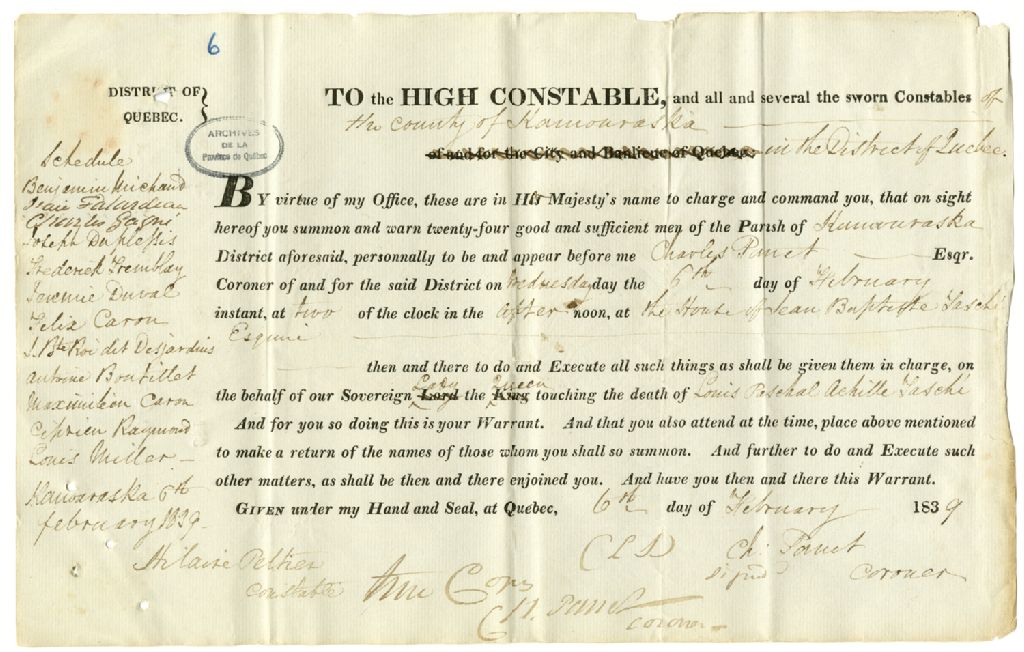 6
DISTRICT OF
QUEBEC.
TO the HIGH CONSTABLE, and all and several the sworn Constables of
the County of Kamouraska
of and for the City and Banlieue of Quebec. in the District of Quebec.
ARCHIVES
DE LA
Province de Québec
Schedule
Benjamin Michaud
Falardeau
Charles Gagné
Joseph Duplessis
Frederick Tremblay
Jeremie Duval
Felix Caron
J. Bte Roi dit Desjardins
Antoine Boutillet
Maximilien Caron
Ciprien Raymond
Louis Miller
Kamouraska 6th
february 1839.
BY virtue of my Office, these are in His Majesty's name to charge and command you, that on sight
hereof you summon and warn twenty-four good and sufficient men of the Parish of Kamouraska
District aforesaid, personnally to be and appear before me Charles Panet Esqr.
Coroner of and for the said District on Wednesday day the 6th day of February
instant, at two of the clock in the after noon, at the House of Jean Baptiste Taché
Esquire
then and there to do and Execute all such things as shall be given them in charge, on
the behalf of our Sovereign Lord Lady the King Queen touching the death of Louis Paschal Achille Taché
And for you so doing this is your Warrant. And that you also attend at the time, place above mentioned
to make a return of the names of those whom you shall so summon. And further to do and Execute such
other matters, as shall be then and there enjoined you. And have you then and there this Warrant.
GIVEN under my Hand and Seal, at Quebec, 6th day of February 1839
Hilaire Peltier
Constable
(L S) Ch: Panet
signed Coroner
true Copy
Ch. Panet
Coroner